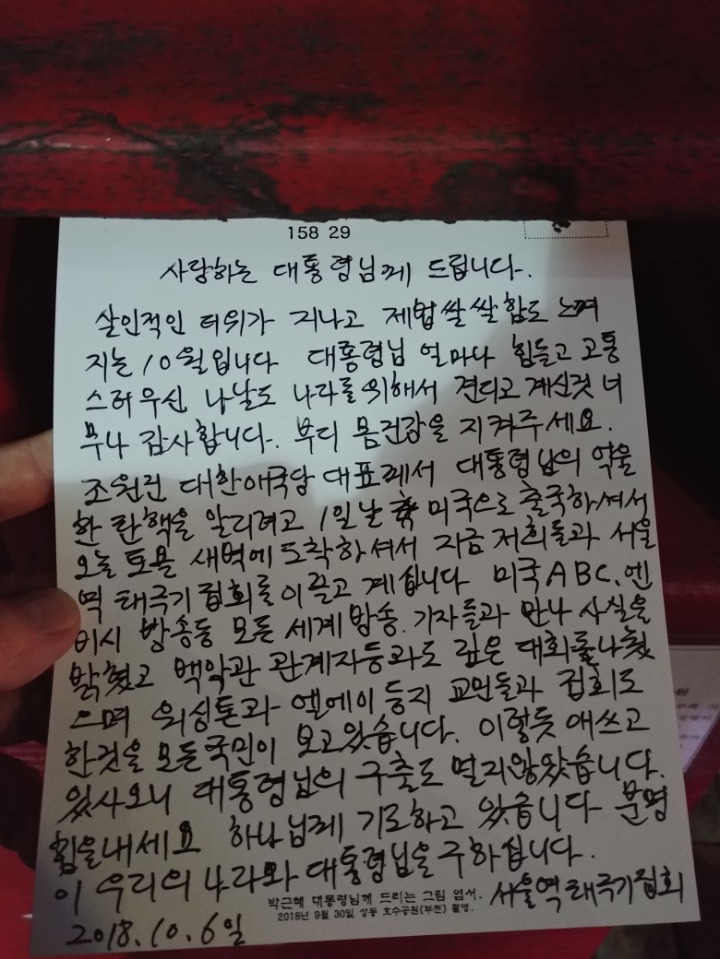 158 29
사랑하는 대통령님께 드립니다.
살인적인 더위가 지나고 제법 쌀쌀함도 느껴
지는 10월입니다 대통령님 얼마나 힘들고 고통
스러우신 나날도 나라를 위해서 견디고 계신것 너
무나 감사합니다. 부디 몸건강을 지켜주세요.
조원진 대한애국당 대표께서 대통령님의 억울
한 탄핵을 알리려고 1일날 미국으로 출국하셔서
오늘 토욜 새벽에 도착하셔서 지금 저희들과 서울
역 태극기 집회를 이끌고 계십니다 미국 ABC, 엔
비시 방송등 모든 세계방송. 기자들과 만나 사실을
밝혔고 백악관 관계자등과도 깊은 대화를 나눴
으며 워싱톤과 엘에이 등지 교민들과 집회도
한것을 모든국민이 보고있습니다. 이렇듯 애쓰고
있사오니 대통령님의 구출도 멀지않았습니다.
힘을내세요 하나님께 기도하고 있습니다 분명
이 우리의 나라와 대통령님을 구하십니다.
박근혜 대통령님께 드리는 그림 엽서. 서울역태극기집회
2018년 9월 30일 상동 호수공원(부천) 촬영.
2018.10.6일